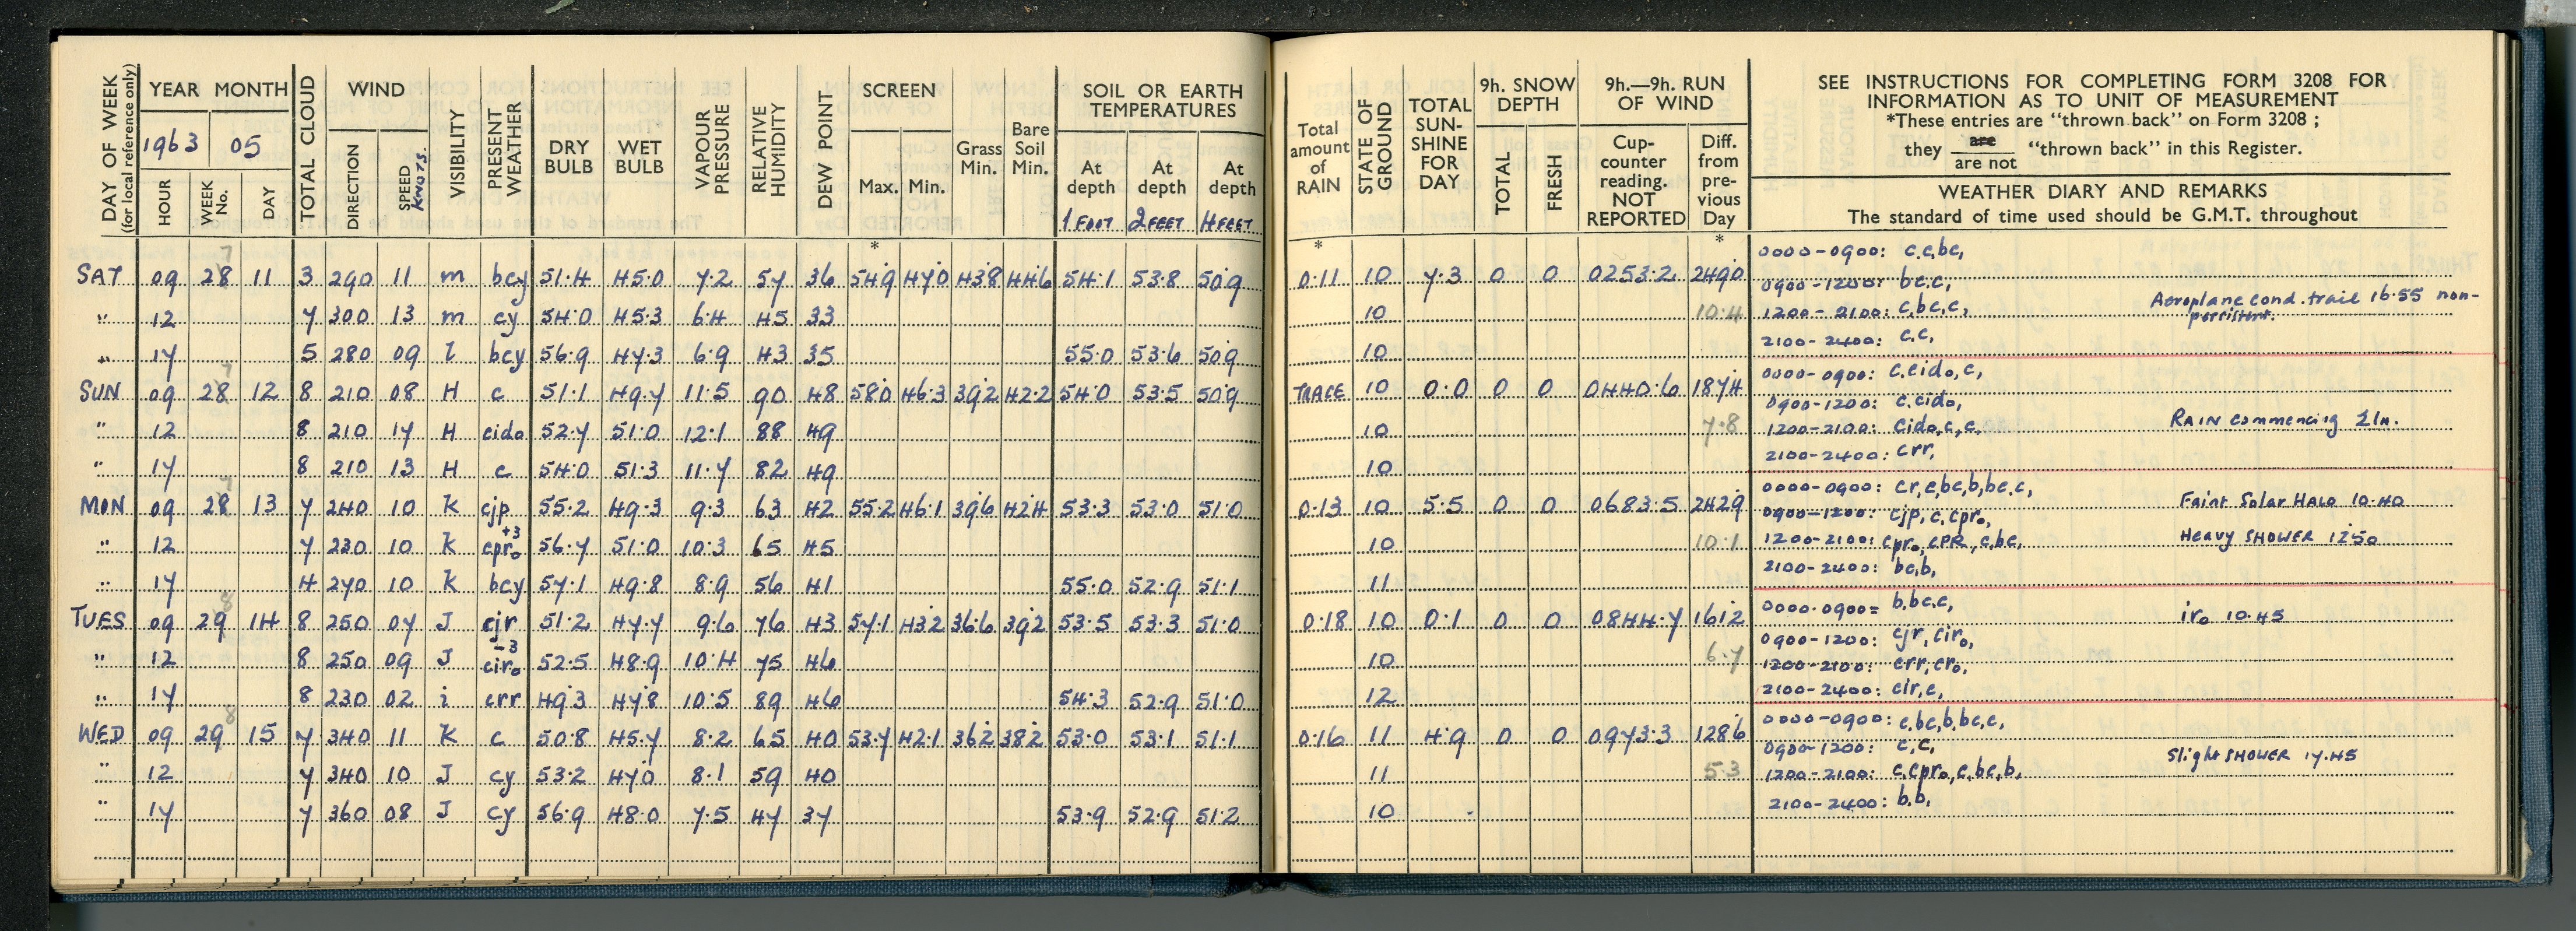 DAY OF WEEK (for local reference only)
YEAR MONTH
1963 05
HOUR WEEK No. DAY
TOTAL CLOUD
WIND
DIRECTION SPEED KNOTS.
VISIBILITY
PRESENT WEATHER
DRY BULB
WET BULB
VAPOUR PRESSURE
RELATIVE HUMIDITY
DEW POINT
SCREEN
Max. Min.
*
Grass Min.
Bare Soil Min.
SOIL OR EARTH TEMPERATURES
At depth 1 FOOT
At depth 2 FEET
At depth 4 FEET
Total amount of RAIN
*
STATE OF GROUND
TOTAL SUN-SHINE FOR DAY
9h. SNOW DEPTH
TOTAL FRESH
9h.—9h. RUN OF WIND
Cup-counter reading. NOT REPORTED
Diff. from pre-vious Day
*
SEE INSTRUCTIONS FOR COMPLETING FORM 3208 FOR
INFORMATION AS TO UNIT OF MEASUREMENT
*These entries are "thrown back" on Form 3208 ;
they are / are not "thrown back" in this Register.
WEATHER DIARY AND REMARKS
The standard of time used should be G.M.T. throughout
SAT 09 28 7 11 3 290 11 m bcy 51·4 45·0 7·2 57 36 54·9 47·0 43·8 44·6 54·1 53·8 50·9 0·11 10 7·3 0 0 0253·2 249·0 0000-0900: c,c,bc,
0900-1200: bc,c,
" 12 7 300 13 m cy 54·0 45·3 6·4 45 33 10 10·4 1200-2100: c,bc,c, Aeroplane cond. trail 16·55 non-persistent.
" 17 5 280 09 l bcy 56·9 47·3 6·9 43 35 55·0 53·6 50·9 10 2100-2400: c,c,
SUN 09 28 7 12 8 210 08 4 c 51·1 49·7 11·5 90 48 58·0 46·3 39·2 42·2 54·0 53·5 50·9 TRACE 10 0·0 0 0 0440·6 187·4 0000-0900: c,cido,c,
0900-1200: c,cido,
" 12 8 210 17 4 cido 52·7 51·0 12·1 88 49 10 7·8 1200-2100: cido,c,c, RAIN commencing 21h.
" 17 8 210 13 4 c 54·0 51·3 11·7 82 49 10 2100-2400: crr,
MON 09 28 7 13 7 240 10 K cjp 55·2 49·3 9·3 63 42 55·2 46·1 39·6 42·4 53·3 53·0 51·0 0·13 10 5·5 0 0 0683·5 242·9 0000-0900: cr,c,bc,b,bc,c, Faint Solar HALO 10·40
0900-1200: cjp,c,cpro,
" 12 7 230 10 K +3 cpro 56·7 51·0 10·3 65 45 10 10·1 1200-2100: cpro,cPR,c,bc, Heavy SHOWER 1250
" 17 4 270 10 K bcy 57·1 49·8 8·9 56 41 55·0 52·9 51·1 11 2100-2400: bc,b,
TUES 09 29 8 14 8 250 07 J cjr 51·2 47·7 9·6 76 43 57·1 43·2 36·6 39·2 53·5 53·3 51·0 0·18 10 0·1 0 0 0844·7 161·2 0000-0900= b,bc,c, iro 10·45
0900-1200: cjr,ciro,
" 12 8 250 09 J -3 ciro 52·5 48·9 10·4 75 46 10 6·7 1200-2100: crr,cro,
" 17 8 230 02 i crr 49·3 47·8 10·5 89 46 54·3 52·9 51·0 12 2100-2400: cir,c,
WED 09 29 8 15 7 340 11 K c 50·8 45·7 8·2 65 40 53·7 42·1 36·2 38·2 53·0 53·1 51·1 0·16 11 4·9 0 0 0973·3 128·6 0000-0900: c,bc,b,bc,c,
0900-1200: c,c,
" 12 7 340 10 J cy 53·2 47·0 8·1 59 40 11 5·3 1200-2100: c,cpro,c,bc,b, Slight SHOWER 17·45
" 17 7 360 08 J cy 56·9 48·0 7·5 47 37 53·9 52·9 51·2 10 2100-2400: b,b,